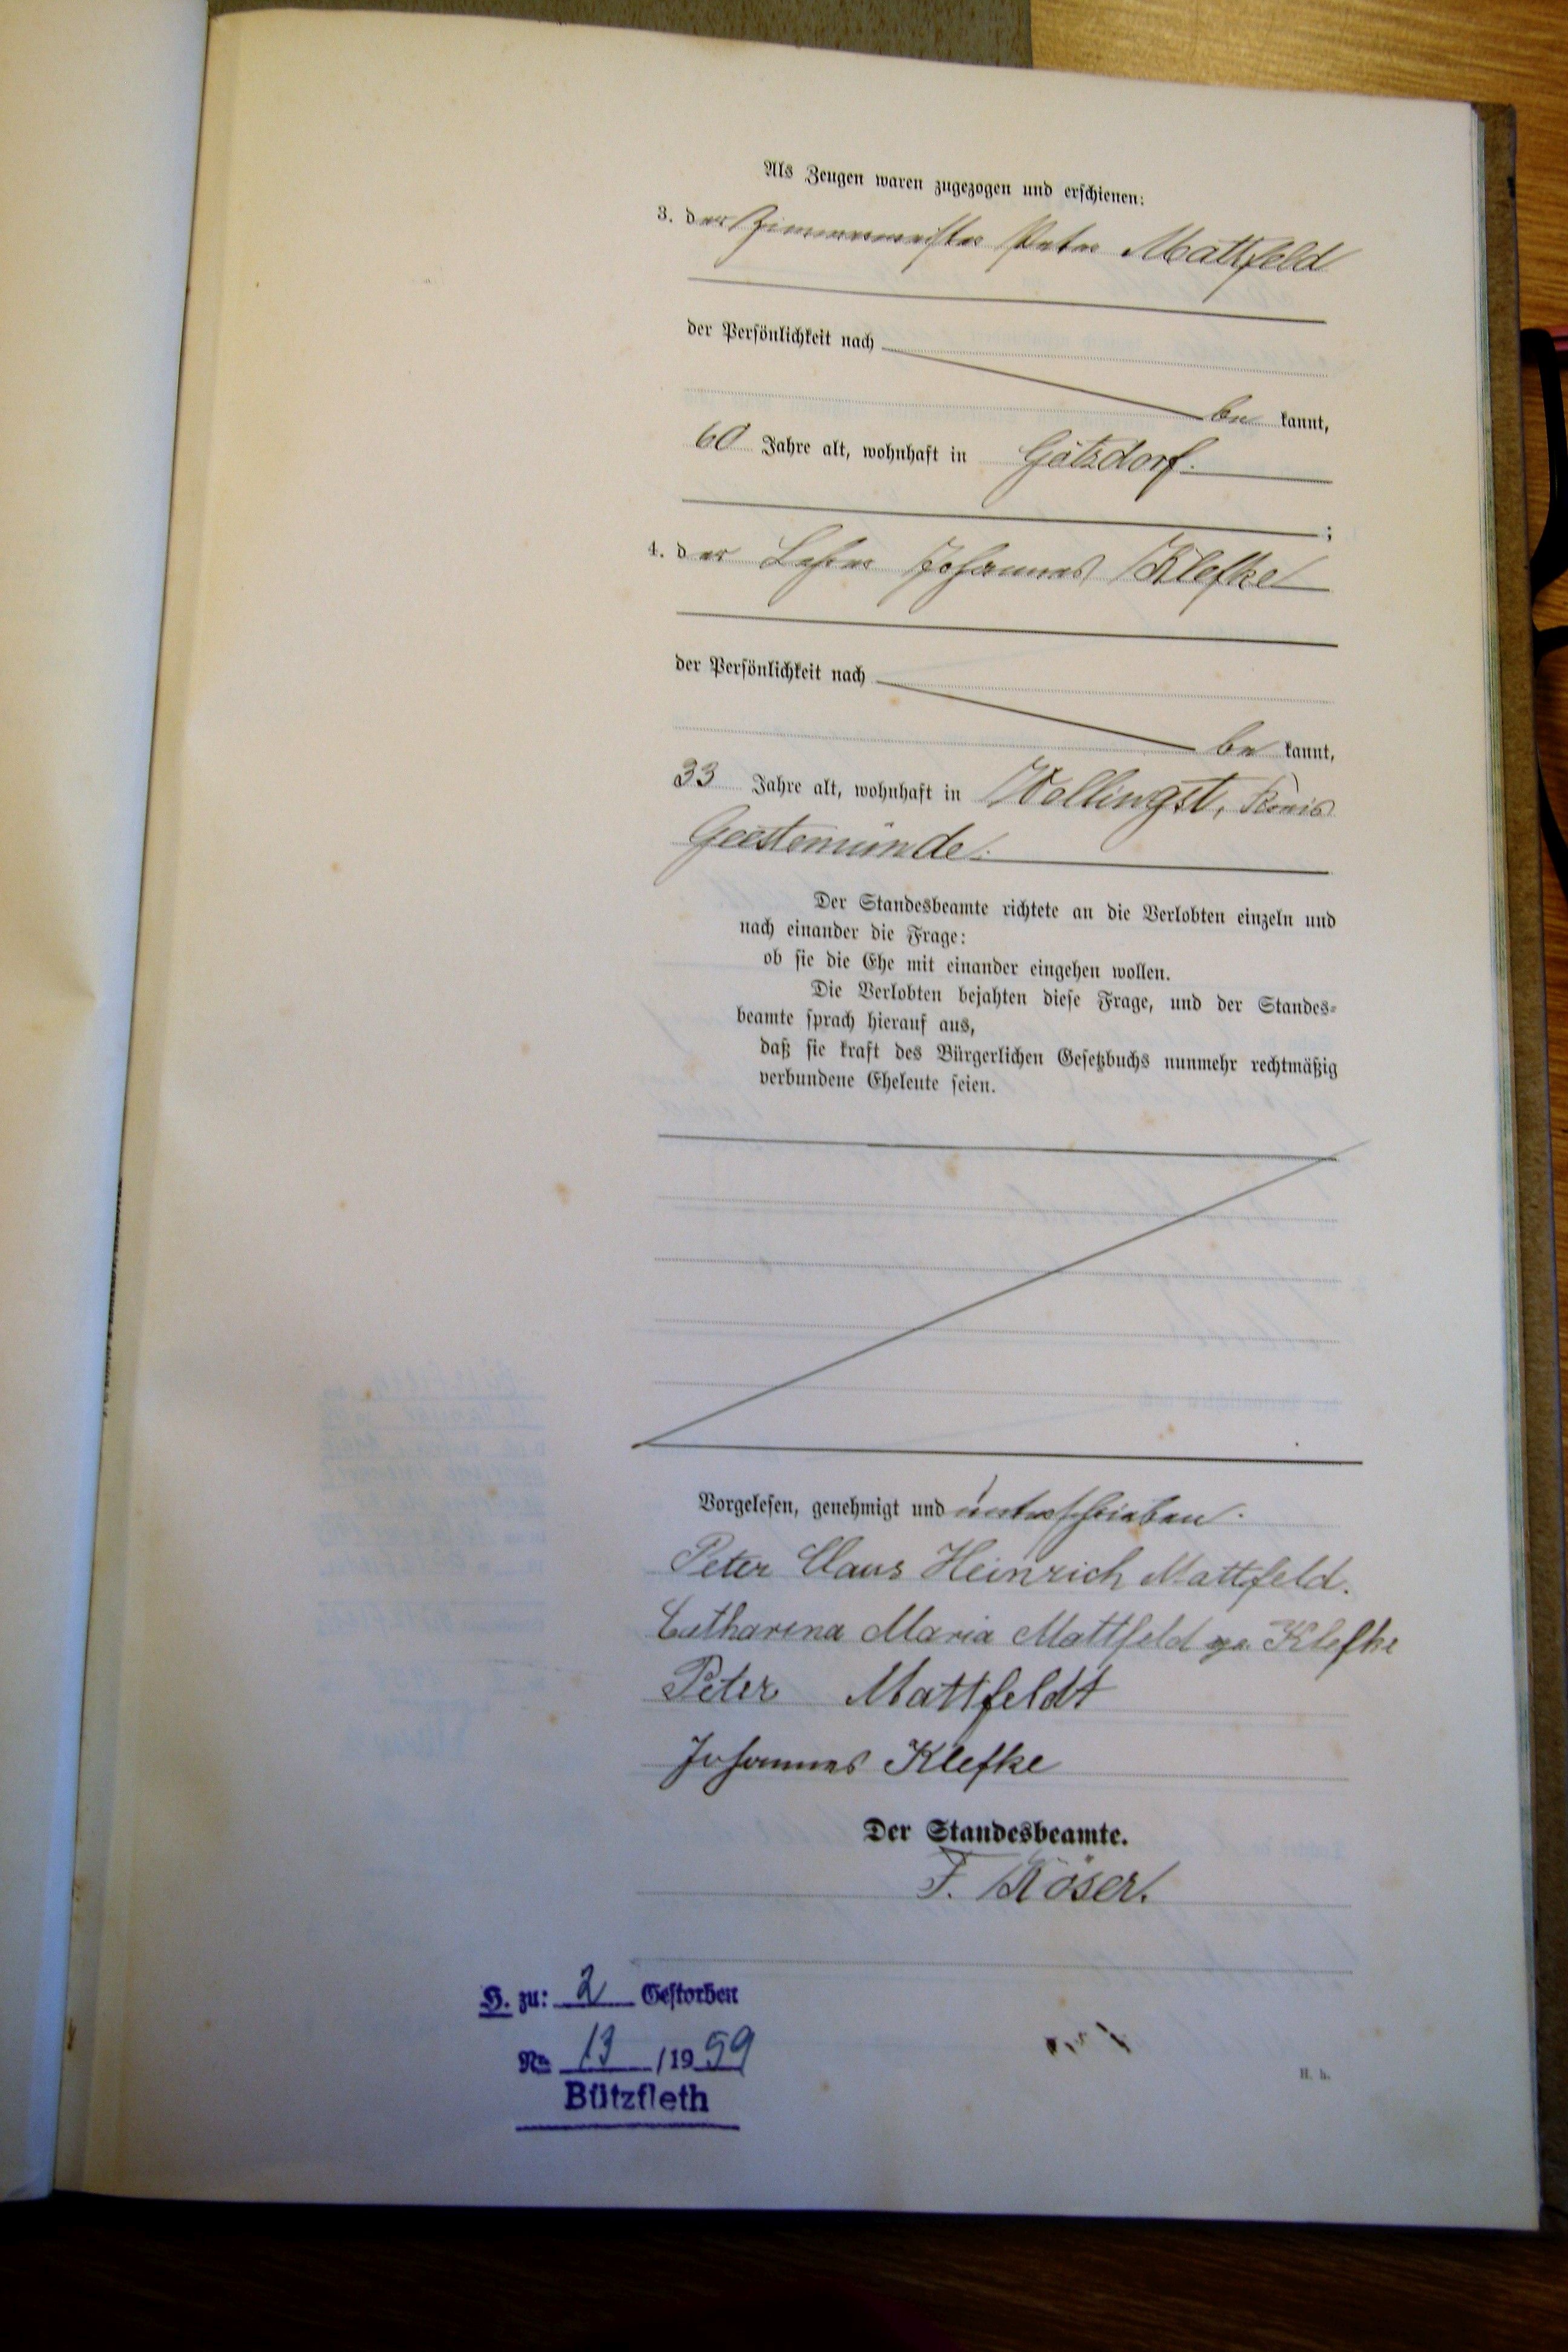 Als Zeugen waren zugezogen und erschienen:
3. der Zimmermeister Peter Mattfeld
der Persönlichkeit nach
be kannt,
60 Jahre alt, wohnhaft in Götzdorf.
;
4. der Lehrer Johannes Klefke
der Persönlichkeit nach
be kannt,
33 Jahre alt, wohnhaft in Wollingst, Kreis
Geestemünde.
Der Standesbeamte richtete an die Verlobten einzeln und
nach einander die Frage:
ob sie die Ehe mit einander eingehen wollen.
Die Verlobten bejahten diese Frage, und der Standes-
beamte sprach hierauf aus,
daß sie kraft des Bürgerlichen Gesetzbuchs nunmehr rechtmäßig
verbundene Eheleute seien.
Vorgelesen, genehmigt und unterschrieben.
Peter Claus Heinrich Mattfeld.
Catharina Maria Mattfeld ge. Klefke
Peter Mattfeldt
Johannes Klefke
Der Standesbeamte.
F. Röser.
H. zu: 2 Gestorben
Nr. 13 /1959
Bützfleth
H. h.